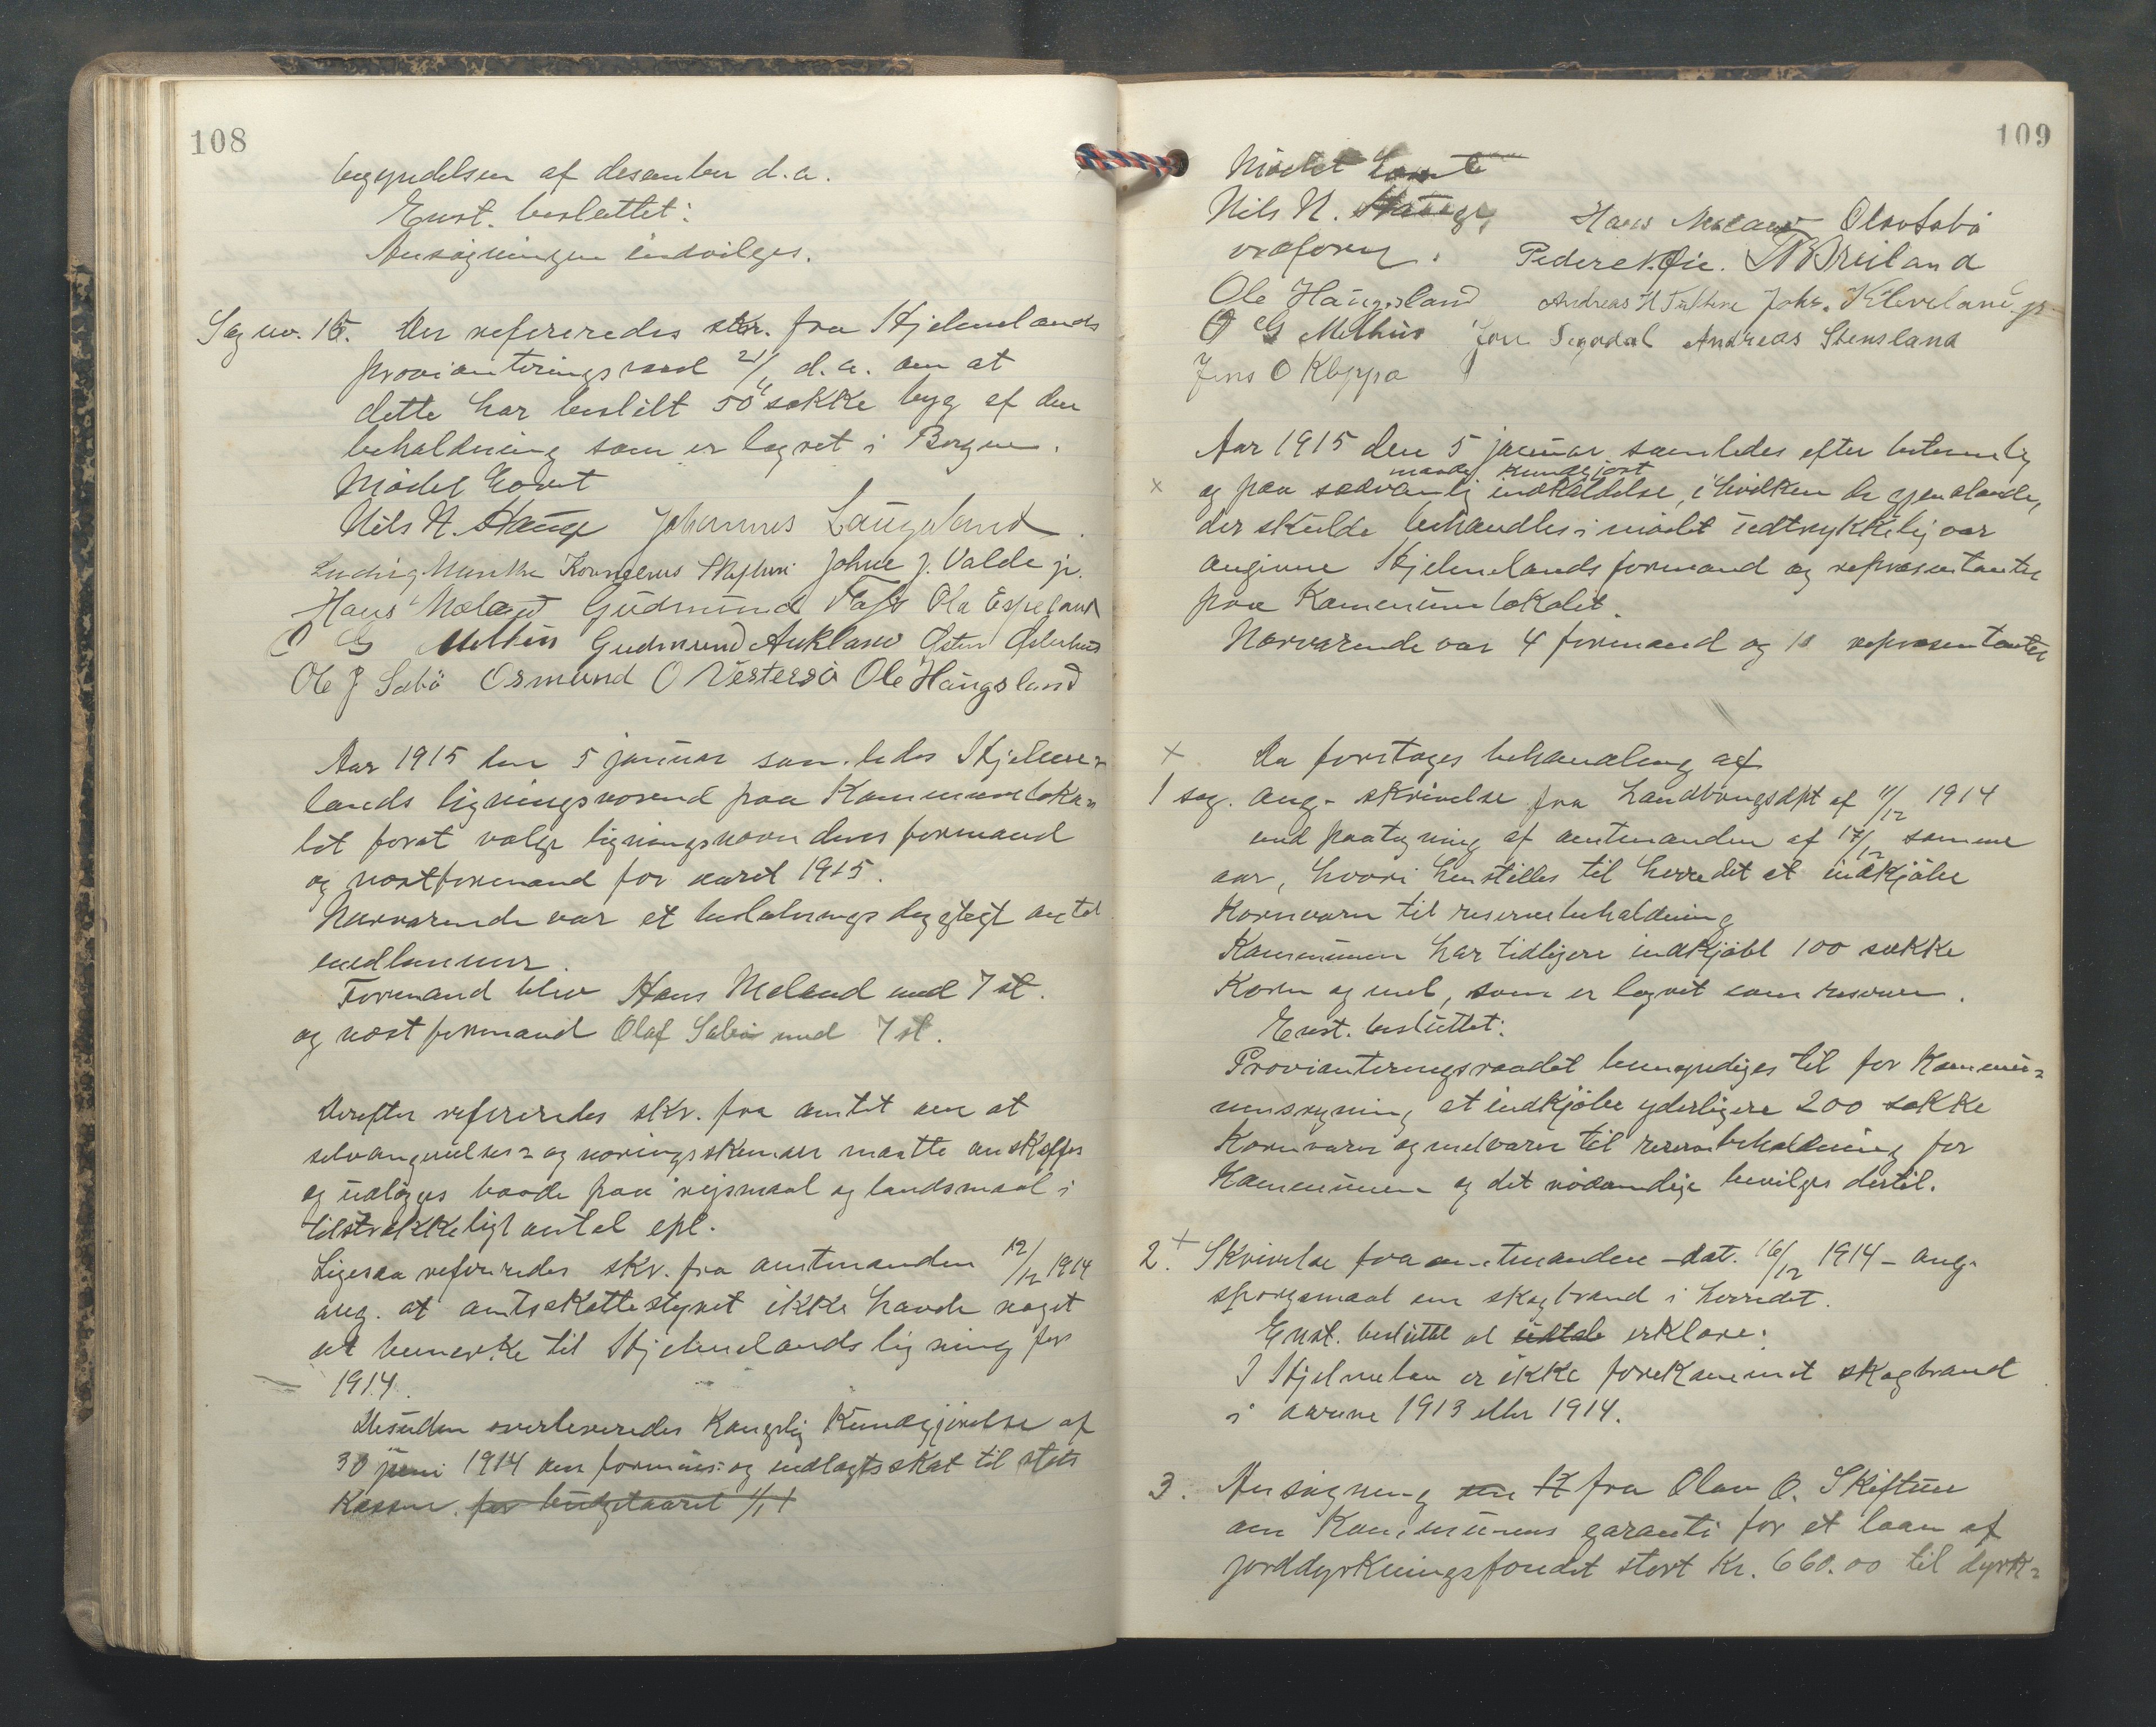 108
begyndelsen af desember d.a.
Enst. besluttet:
Ansøgningen indvilges.
Sag no. 16. Der refereredes skr. fra Hjelmelands
provianteringsraad 21/ d.a. om at
dette har bestilt 50 sække byg af den
beholdning som er lagret i Bergen.
Mødet hævet
Nils N. Hauge Johannes Laugaland
Ludvig Munke Kornelius Skiftun Johne J. Valde jr.
Hans Mæland Gudmund Ola Espeland
O G Melhus Gudmund Aukland Østen Østerhus
Ole J Sæbø Osmund O Vestersø Ole Haugsland
Aar 1915 den 5 januar samledes Hjelme=
lands ligningsnevnd paa Kommuneloka=
let forat vælge ligningsnevndens formand
og næstformand for aaret 1915.
Nærværende var et beslutningsdygtigt antal
medlemmer.
Formand blev Hans Mæland med 7 st.
og næstformand Olaf Sæbø med 7 st.
Derefter refereredes skr. fra amtet om at
selvangivelses= og næringsskemaer maatte anskaffes
og udlægges baade paa rigsmaal og landsmaal i
tilstrækkeligt antal epl.
Ligesaa refereredes skr. fra amtmanden 12/12 1914
ang. at amtsskattestyret ikke havde noget
at bemerke til Hjelmelands ligning for
1914.
Desuden overleveredes Kongelig Kundgjørelse af
30 juni 1914 om formues= og indtægtsskat til stats
Kassen. for budgetaaret 1/
109
Mødet hævet
Nils N. Hauge Hans Mæland Olav Sæbø
ordfører. Peder Øie. Breiland
Ole Haugsland Andreas H Johs. Kleveland jr.
O G Melhus Jon Segadal Andreas Stensland
Jens O Kleppa
Aar 1915 den 5 januar samledes efter betimelig
maade kundgjort
x og paa sædvanlig indkaldelse, i hvilken de gjenstande,
der skulde behandles i mødet udtrykkelig var
angivne Hjelmelands formænd og repræsentanter
paa Kommunelokalet.
Nærværende var 4 formænd og 10 repræsentanter
x Da foretages behandling af
1 sag. ang. skrivelse fra Landbrugsdpt af 11/12 1914
med paategning af amtmanden af 17/12 samme
aar, hvori henstilles til herredet at indkjøbe
Kornvarer til reservebeholdning
Kommunen har tidligere indkjøbt 100 sække
Korn og mel, som er lagret som reserve.
Enst. besluttet:
Provianteringsraadet bemyndiges til for Kommu=
nens regning at indkjøbe yderligere 200 sække
Kornvarer og melvarer til reservebeholdning for
Kommunen og det nødvendige bevilges dertil.
2. x Skrivelse fra amtmanden - dat. 16/12 1914 - ang.
spørgsmaal om skogbrand i herredet.
Enst. besluttet at udtale erklære:
I Hjelmelan er ikke forekommet skogbrand
i aarene 1913 eller 1914.
3. Ansøgning om fra Olav O. Skiftun
om Kommunens garanti for et laan af
jorddyrkningsfondet stort kr. 660.00 til dyrk=